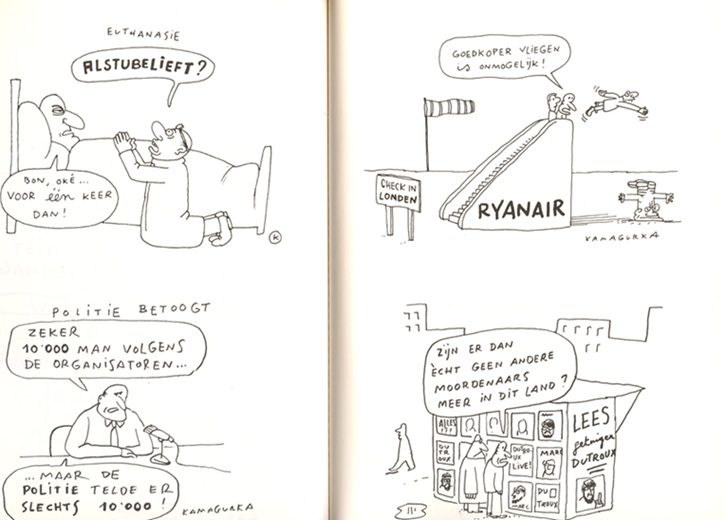 EUTHANASIE
ALSTUBELIEFT?
BON, OKÉ...
VOOR ÉÉN KEER
DAN!
K
POLITIE BETOOGT
ZEKER
10'000 MAN VOLGENS
DE ORGANISATOREN...
...MAAR DE
POLITIE TELDE ER
SLECHTS 10'000!
KAMAGURKA
GOEDKOPER VLIEGEN
IS ONMOGELIJK!
CHECK IN
LONDEN
RYANAIR
KAMAGURKA
ZIJN ER DAN
ÈCHT GEEN ANDERE
MOORDENAARS
MEER IN DIT LAND?
ALLES
DU
TROUX
DUTROUX
LIVE!
MARC
MARC
DU
TROUX
LEES
getuigen
DUTROUX